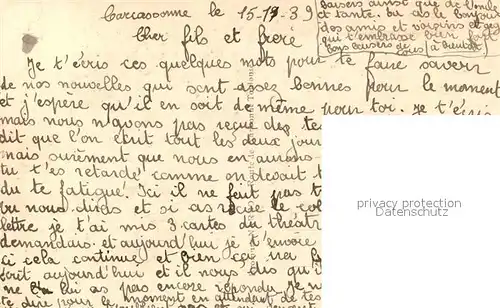 Carcassonne le 15-12-39
Cher fils et frère
Je t'écris ces quelques mots pour te faire savoir
de nos nouvelles qui sont assez bonnes pour le moment
et j'espère qu'il en soit de même pour toi. je t'écris
mais nous n'avons pas reçue des te
dit que l'on écrit tout les deux jour
mais surement que nous en aurons
tu t'es retardé comme on devait t
du te fatigué. Ici il ne fait pas t
tu nous diras et si as le col
lettre je t'ai mis 3 cartes du théatr
demandais et aujourd'hui je t'envoie
ci cela continue et bien
écrit aujourd'hui et il nous dis qu'i
ne lui as pas encore répondu je n
te dire pour le moment en attendant de tes
baisers ainsi que de l'oncle
et tante. tu as le bonjour
des amis et voisins
qui t'embrasse bien fort
bons baisers de tous à bientôt
privacy protection
Datenschutz